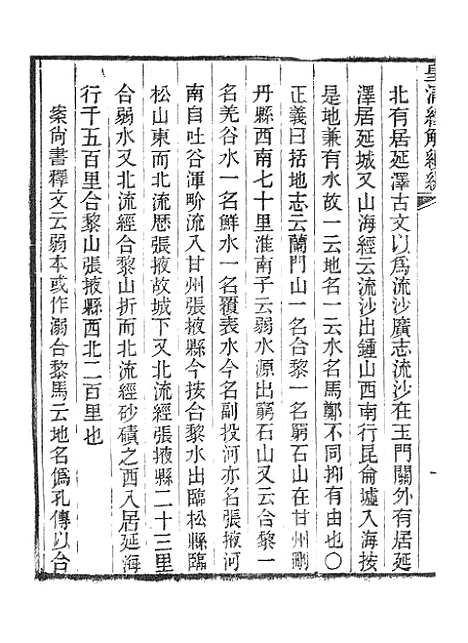 皇清經解續編
北有居延澤古文以爲流沙廣志流沙在玉門關外有居延
澤居延城又山海經云流沙出鍾山西南行昆侖墟入海按
是地兼有水故一云地名一云水名馬鄭不同抑有由也〇
正義曰括地志云蘭門山一名合黎一名窮石山在甘州刪
丹縣西南七十里淮南子云弱水源出窮石山又云合黎一
名羌谷水一名鮮水一名覆表水今名副投河亦名張掖河
南自吐谷渾界流入甘州張掖縣今按合黎水出臨松縣臨
松山東而北流歷張掖故城下又北流經張掖縣二十三里
合弱水又北流經合黎山折而北流經砂磧之西入居延海
行千五百里合黎山張掖縣西北二百里也
案尚書釋文云弱本或作溺合黎馬云地名僞孔傳以合